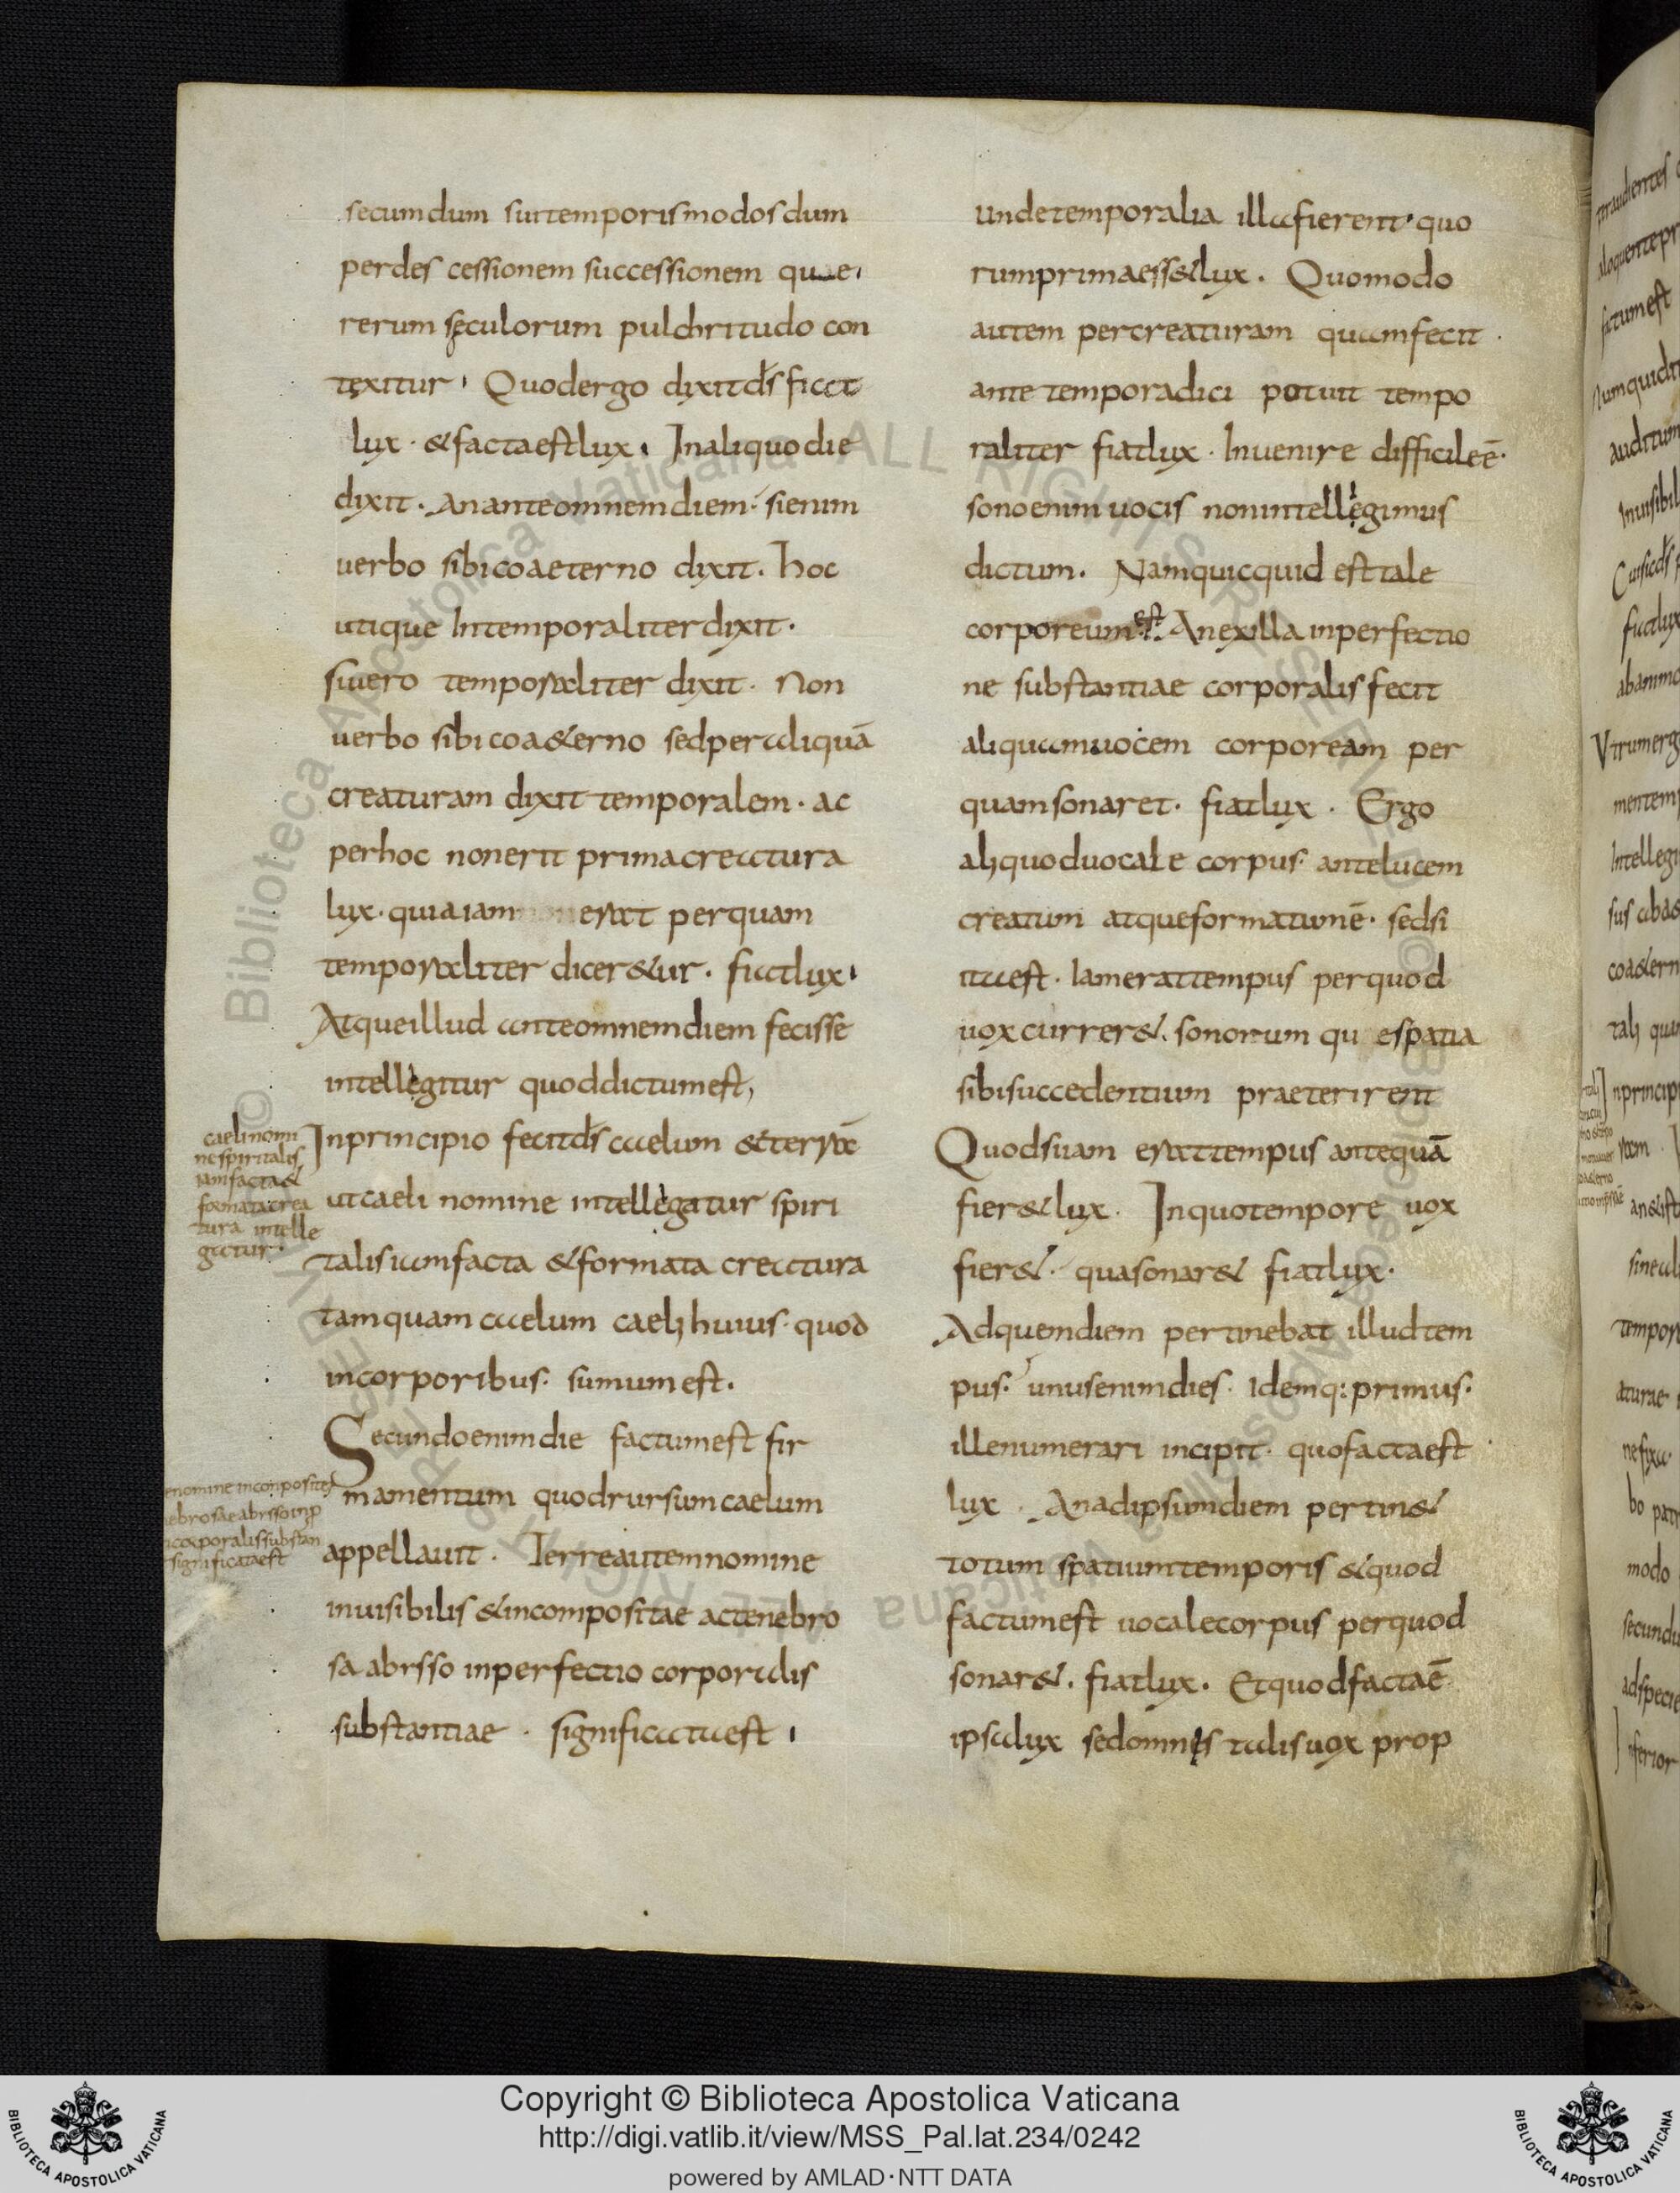 secundum sui temporis modos dum
per des cessionem successionem que
rerum sęculorum pulchritudo con
texitur Quod ergo dixit d̄s fiat
lux · & facta est lux · In aliquo die
dixit · An ante omnem diem · si enim
uerbo sibi coaeterno dixit · hoc
utique Intemporaliter dixit ·
si uero temporaliter dixit · Non
uerbo sibi coa&erno sed per aliquā
creaturam dixit temporalem · ac
per hoc non erit prima creatura
lux · quia iam erat per quam
temporaliter dicer&ur · fiat lux
Atque illud ante omnem diem fecisse
intellegitur quod dictum est,
In principio fecit d̄s caelum & terrā
ut caeli nomine intellegatur spiri
talis iam facta & formata creatura
tamquam caelum caeli huius · quod
in corporibus · sumum est ·
Secundo enim die factum est fir
mamentum quod rursum caelum
appellauit · Terre autem nomine
inuisibilis & incompositae ac tenebro
sa abysso inperfectio corporalis
substantiae · significata est
caeli nomi
ne spiritalis
iam facta &
formata crea
tura intelle
gitur ·
nomine incomposite &
ebrosae abysso inp
corporalis substan
significata est
unde temporalia illa fierent · quo
rum prima ess& lux · Quomodo
autem per creaturam quam fecit ·
ante tempora dici potuit tempo
raliter fiat lux · Inuenire difficile ē ·
sono enim uocis non intellegimus
dictum · Nam quicquid est tale
corporeum est · An ex illa inperfectio
ne substantiae corporalis fecit
aliquam uocem corpoream per
quam sonaret · fiat lux · Ergo
aliquod uocale corpus · ante lucem
creatum atque formatum ē · sed si
ita est · Iam erat tempus per quod
uox currer& · sonorum qu e spatia
sibi succedentium praeterirent
Quod si iam erat tempus antequā
fier& lux · In quo tempore uox
fier& · qua sonar& fiat lux ·
Ad quem diem pertinebat illud tem
pus · unus enim dies · Idemq: primus ·
ille numerari incipit · quo facta est
lux · An ad ipsum diem pertin&
totum spatium temporis & quod
factum est uocale corpus per quod
sonar& · fiat lux · Et quod facta ē
ipsa lux sed omnis talis uox prop
Copyright © Biblioteca Apostolica Vaticana
http://digi.vatlib.it/view/MSS_Pal.lat.234/0242
powered by AMLAD·NTT DATA
BIBLIOTECA APOSTOLICA VATICANA
BIBLIOTECA APOSTOLICA VATICANA